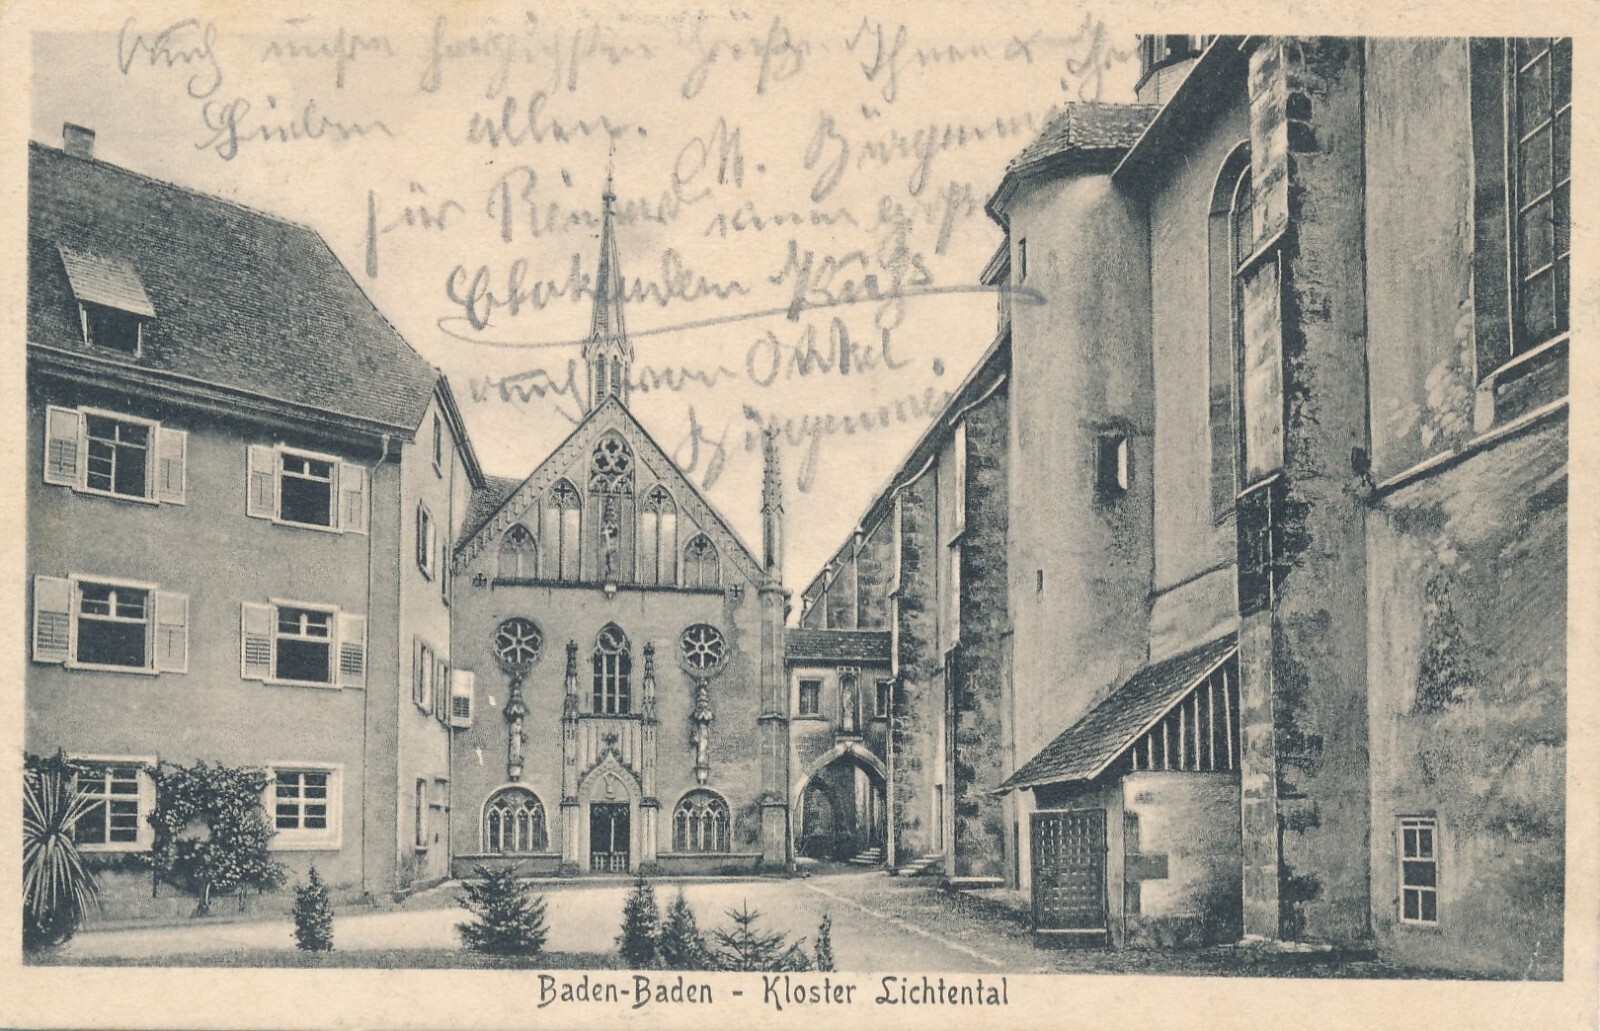 Auch unsere herzlichsten Grüße Ihnen & Ihren
Lieben allen.
M. Bürgenmei
für Reinhard einen extra
Chokoladen Kuss
auch von Onkel
Bürgenmei
Baden-Baden - Kloster Lichtental